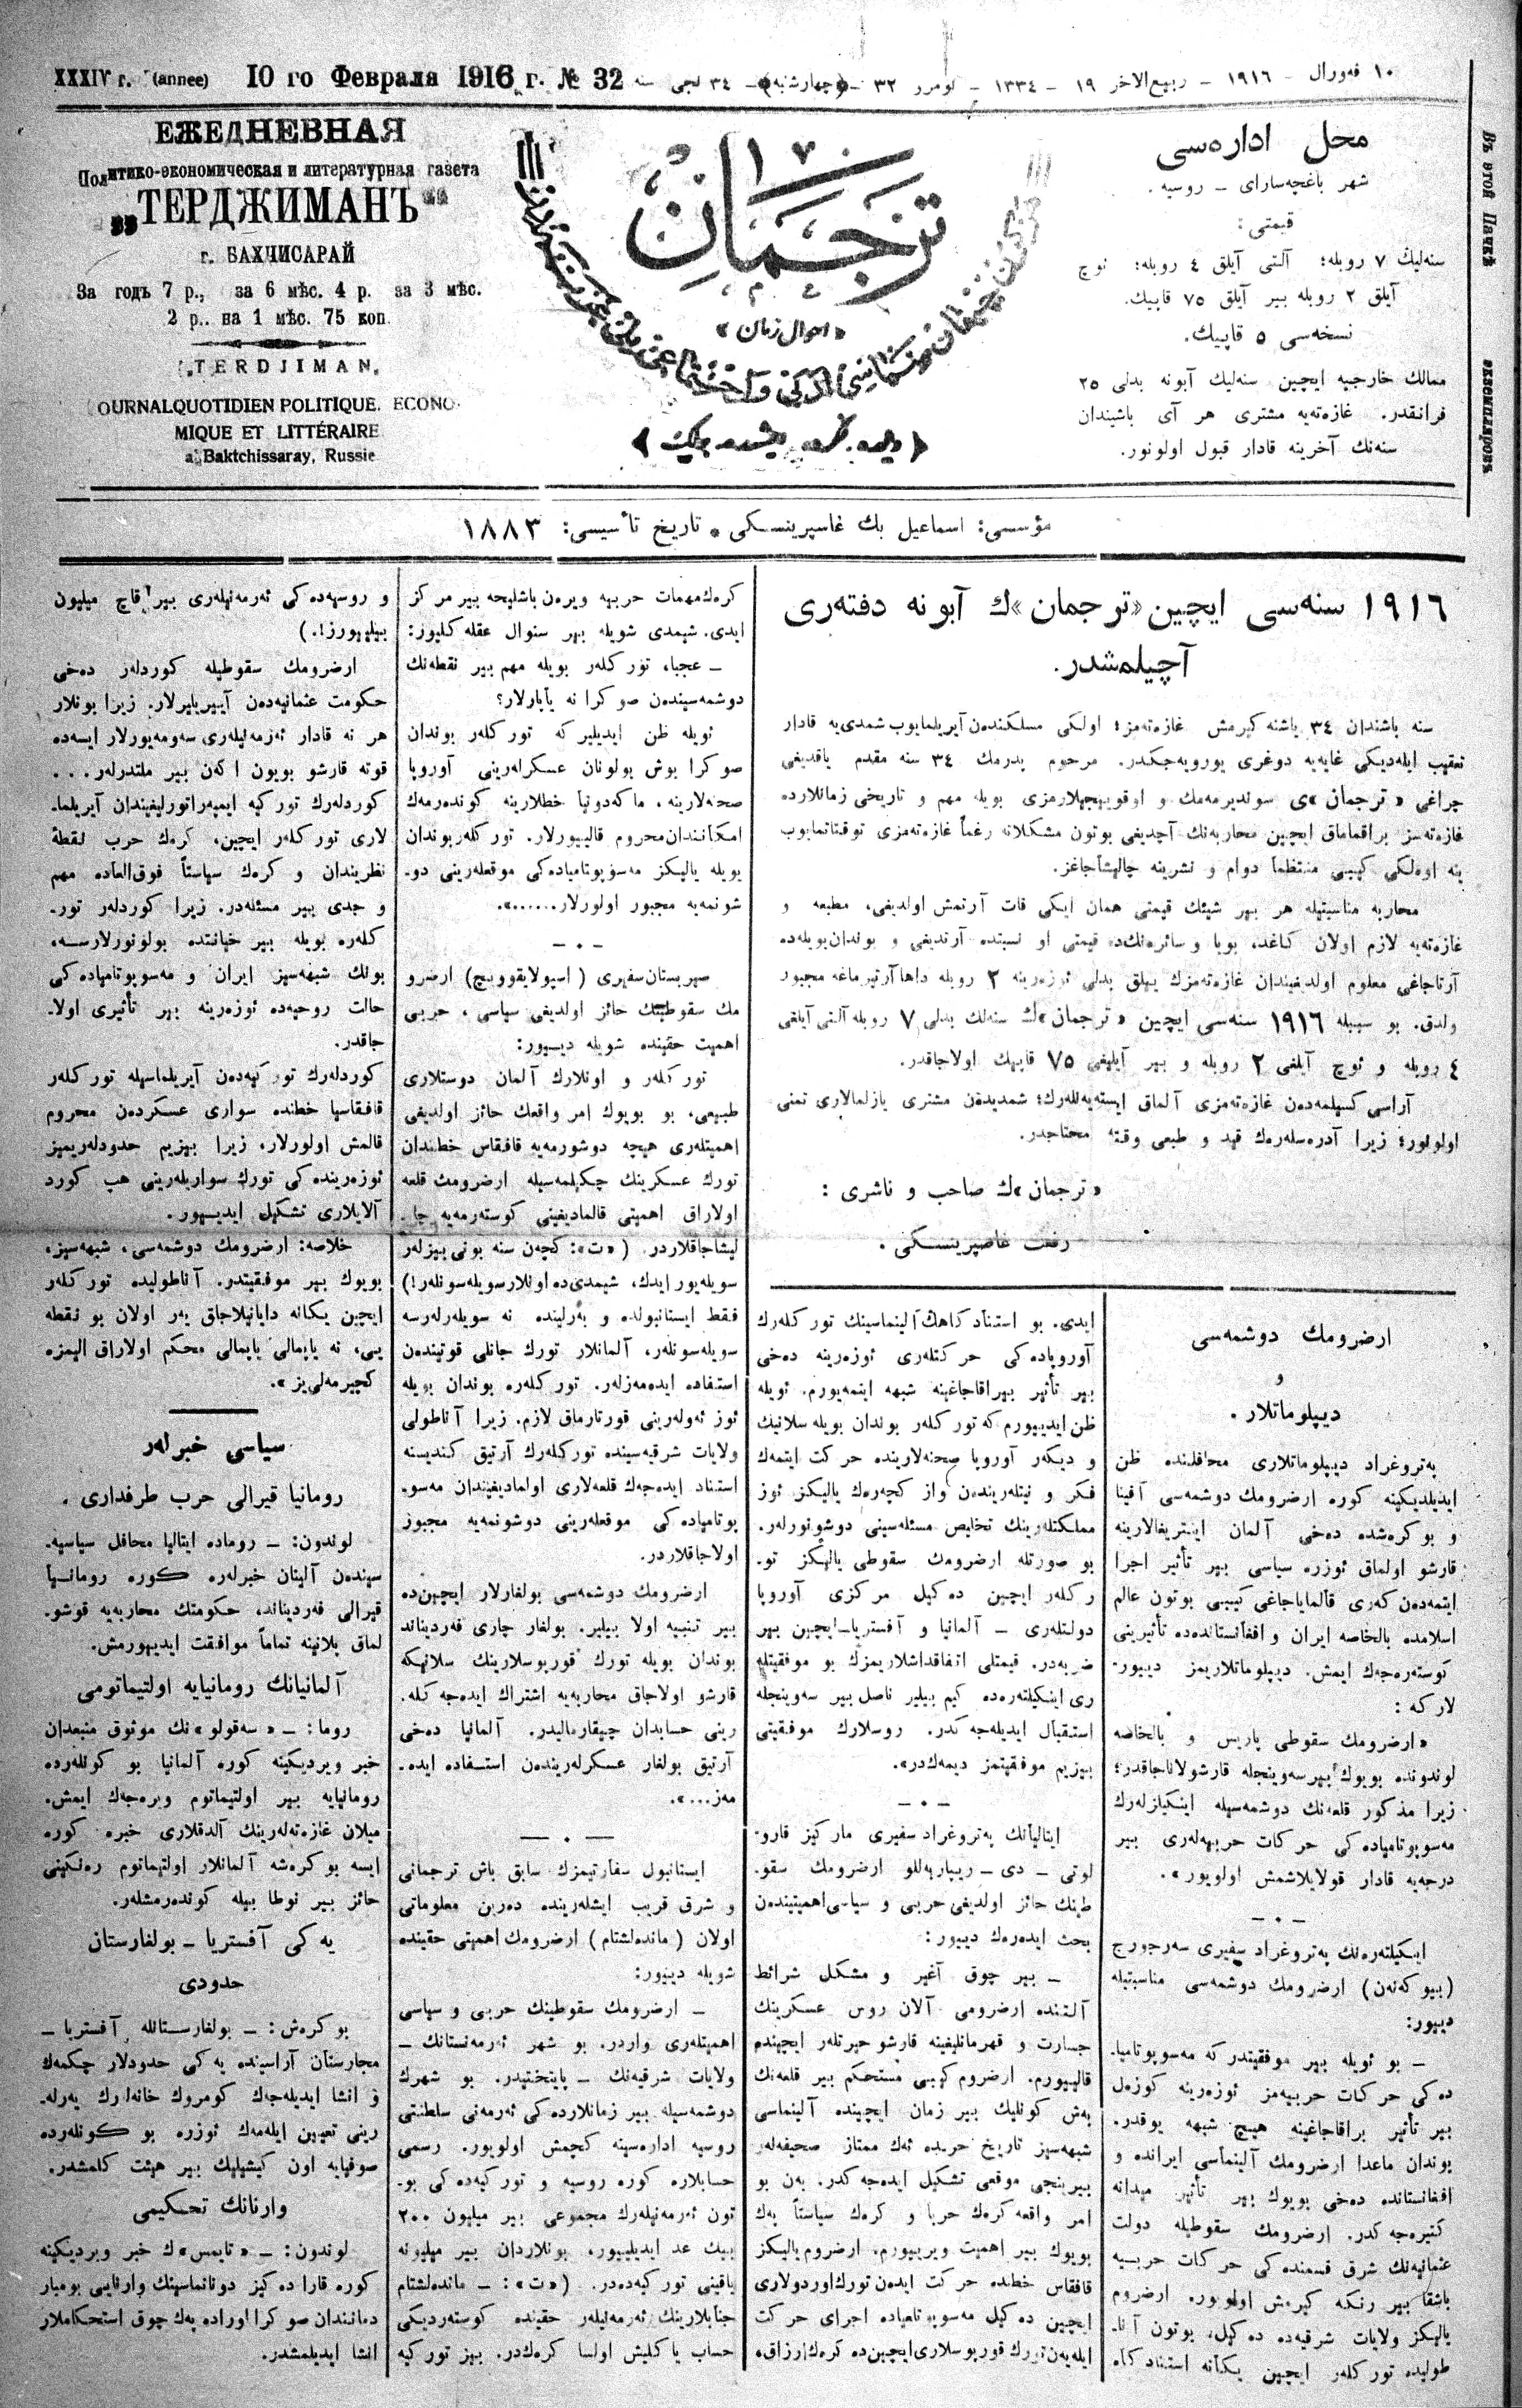 XXXIV г. (annee) 10 го Февраля 1916 г. № 32
١٠ فەورال - ١٩١٦ - ربیع‌الاخر ١٩ - ١٣٣٤ - نومرو ٣٢ -(چهارشنبه)- ٣٤ نجی سنه
ЕЖЕДНЕВНАЯ
Политико-экономическая и литературная газета
„ТЕРДЖИМАНЪ“
г. БАХЧИСАРАЙ
За годъ 7 р., за 6 мѣс. 4 р. за 3 мѣс.
2 р.. на 1 мѣс. 75 коп.
„TERDJIMAN„
OURNALQUOTIDIEN POLITIQUE. ECONO-
MIQUE ET LITTÉRAIRE
a Baktchissaray, Russie
ترجمان
« احوال زمان »
محل اداره‌سی
شهر باغچه‌سارای - روسیه .
قیمتی :
سنه‌لیك ٧ روبله؛ آلتی آیلق ٤ روبله؛ ئوچ
آیلق ٢ روبله بیر آیلق ٧٥ قاپیك.
نسخه‌سی ٥ قاپیك.
ممالك خارجیه ایچین سنه‌لیك آبونه بدلی ٢٥
فرانقدر. غازه‌ته‌یه مشتری هر آی باشیندان
سنه‌نك آخرینه قادار قبول اولونور.
Въ этой Пачкѣ экземпляровъ
مؤسسی: اسماعیل بك غاسپرینسکی * تاریخ تأسیسی: ١٨٨٣
١٩١٦ سنه‌سی ایچین «ترجمان»ك آبونه دفته‌ری
آچیلمشدر.
سنه باشندان ٣٤ یاشنه کیرمش غازه‌ته‌مز؛ اولکی مسلکندن آیریلمایوب شمدی‌یه قادار
تعقیب ایله‌دیکی غایه‌یه دوغری یورویه‌جکدر. مرحوم پدرمك ٣٤ سنه مقدم یاقدیغی
چراغی «ترجمان»ی سوندیرمه‌مك و اوقوییجیلارمزی بویله مهم و تاریخی زمانلارده
غازه‌ته‌سز براقماماق ایچین محاربه‌نك آچدیغی بوتون مشکلاته رغماً غازه‌ته‌مزی توقتاتمایوب
ینه اوه‌لکی کیبی منتظماً دوام و نشرینه چالیشاجاغز.
محاربه مناسبتیله هر بیر شیئك قیمتی همان ایکی قات آرتمش اولدیغی، مطبعه و
غازه‌ته‌یه لازم اولان کاغد، بویا و سائره‌نك‌ده قیمتی او نسبتده آرتدیغی و بوندان‌بویله‌ده
آرتاجاغی معلوم اولدیغیندان غازه‌ته‌مزك ییلق بدلی ئوزه‌رینه ٢ روبله داها آرتیرماغه مجبور
ولدق. بو سببله ١٩١٦ سنه‌سی ایچین «ترجمان»ك سنه‌لك بدلی ٧ روبله آلتی آیلغی
٤ روبله و ئوچ آیلغی ٢ روبله و بیر آیلیغی ٧٥ قاپیك اولاجاقدر.
آراسی کسیلمه‌دن غازه‌ته‌مزی آلماق ایسته‌یه‌نله‌رك؛ شمدیدەن مشتری یازلمالاری تمنی
اولونور؛ زیرا آدره‌سله‌رەك قید و طبعی وقته محتاجدر.
«ترجمان»ك صاحب و ناشری :
رفعت غاصپرینسکی .
ارضرومك دوشمه‌سی
و
دیپلوماتلار .
په‌تروغراد دیپلوماتلاری محافلنده ظن
ایدیلدیکینه کوره ارضرومك دوشمه‌سی آفینا
و بوکره‌شده ده‌خی آلمان اینتریغالارینه
قارشو اولماق ئوزره سیاسی بیر تأثیر اجرا
ایتمه‌دەن کەری قالمایاجاغی کیبی بوتون عالم
اسلامده بالخاصه ایران و افغانستانده‌ده تأثیرینی
کوسته‌ره‌جه‌ك ایمش. دیپلوماتلاریمز دییور-
لارکه :
«ارضرومك سقوطی پاریس و بالخاصه
لوندونده بویوك بیرسه‌وینجله قارشولاناجاقدر؛
زیرا مذکور قلعه‌نك دوشمه‌سیله اینکیلزله‌رك
مه‌سوپوتامیاده‌کی حرکات حربیه‌له‌ری بیر
درجه‌یه قادار قولایلاشمش اولویور».
— • —
اینکیلته‌ره‌نك په‌تروغراد سفیری سه‌رجورج
(بیوکه‌نه‌ن) ارضرومك دوشمه‌سی مناسبتیله
دییور:
- بو ئویله بیر موفقیتدرکه مه‌سوپوتامیا-
ده‌کی حرکات حربیه‌مز ئوزه‌رینه کوزه‌ل
بیر تأثیر براقاجاغینه هیچ شبهه یوقدر.
بوندان ماعدا ارضرومك آلینماسی ایرانده و
افغانستانده ده‌خی بویوك بیر تأثیر میدانه
کتیره‌جه‌کدر. ارضرومك سقوطیله دولت
عثمانیه‌نك شرق قسمنده‌کی حرکات حربیه
باشقا بیر رنکه کیرمش اولویور. ارضروم
یالیکز ولایات شرقیه‌ده ده‌کیل، بوتون آنا-
طولیده تورکله‌ر ایچین یکانه استنادکاه
ایدی. بو استنادکاهك آلینماسینك تورکله‌رك
آوروپاده‌کی حرکتله‌ری ئوزه‌رینه ده‌خی
بیر تأثیر بیراقاجاغینه شبهه ایتمه‌یورم. ئویله
ظن ایدییورم‌که تورکله‌ر بوندان بویله سلانیك
و دیکه‌ر آوروپا صحنه‌لارینده حرکت ایتمه‌ك
فکر و نیتله‌ریندەن واز کچه‌ره‌ك یالیکز ئوز
مملکتله‌رینك تخلیص مسئله‌سینی دوشونورله‌ر.
بو صورتله ارضرومك سقوطی یالیکز تو-
رکله‌ر ایچین ده‌کیل مرکزی آوروپا
دولتله‌ری - آلمانیا و آفستریا-ایچین بیر
ضربه‌در. قیمتلی اتفاقداشلاریمزك بو موفقیتله
ری اینکیلته‌ره‌ده کیم بیلیر ناصل بیر سه‌وینجله
استقبال ایدیله‌جه‌کدر. روسلارك موفقیتی
بیزیم موفقیتمز دیمه‌کدر».
— • —
ایتالیانك په‌تروغراد سفیری مارکیز قارو-
لوتی - دی - ریپارپه‌للو ارضرومك سقو-
طینك حائز اولدیغی حربی و سیاسی‌اهمیتیندەن
بحث ایده‌ره‌ك دییور :
- بیر چوق آغیر و مشکل شرائط
آلتنده ارضرومی آلان روس عسکرینك
جسارت و قهرمانلیغینه قارشو حیرتله‌ر ایچینده
قالییورم. ارضروم کیبی مستحکم بیر قلعه‌نك
به‌ش کونلیك بیر زمان ایچینده آلینماسی
شبهه‌سیز تاریخ حربده ئه‌ك ممتاز صحیفه‌له‌ر
بیرینجی موقعی تشکیل ایده‌جه‌کدر. به‌ن بو
امر واقعه کره‌ك حربا و کره‌ك سیاستاً په‌ك
بویوك بیر اهمیت ویرییورم. ارضروم یالیکز
قافقاس خطنده حرکت ایدەن تورك‌اوردولاری
ایچین ده‌کیل مه‌سوپوتامیاده اجرای حرکت
ایله‌یه‌ن تورك قورپوسلاری‌ایچین‌ده کره‌ك‌ارزاق،
کره‌ك‌مهمات حربیه ویره‌ن باشلیجه بیر مرکز
ایدی. شیمدی شویله بیر سئوال عقله کلیور:
- عجبا، تورکله‌ر بویله مهم بیر نقطه‌نك
دوشمه‌سیندەن صوکرا نه یاپارلار؟
ئویله ظن ایدیلیرکه تورکله‌ر بوندان
صوکرا بوش بولونان عسکرله‌رینی آوروپا
صحنه‌لارینه، ماکه‌دونیا خطلارینه کونده‌رمه‌ك
امکانندان‌محروم قالییورلار. تورکله‌ربوندان
بویله یالیکز مه‌سوپوتامیاده‌کی موقعله‌رینی دو-
شونمه‌یه مجبور اولورلار......».
— • —
صیربستان‌سفیری (اسپولایقوویچ) ارضرو
مك سقوطینك حائز اولدیغی سیاسی، حربی
اهمیت حقینده شویله دییور:
تورکله‌ر و اونلارك آلمان دوستلاری
طبیعی، بو بویوك امر واقعك حائز اولدیغی
اهمیتله‌ری هیچه دوشورمه‌یه قافقاس خطندان
تورك عسکرینك چکیلمه‌سیله ارضرومك قلعه
اولاراق اهمیتی قالمادیغینی کوسته‌رمه‌یه چا-
لیشاجاقلاردر. («ت»: کچه‌ن سنه بونی بیزله‌ر
سویله‌یور ایدك، شیمدی‌ده اونلارسویله‌سونله‌ر!)
فقط ایستانبولده و به‌رلینده نه سویله‌رله‌رسه
سویله‌سونله‌ر، آلمانلار تورك جانلی قوتیندەن
استفاده ایده‌مه‌زله‌ر. تورکله‌ره بوندان بویله
ئوز ئه‌وله‌رینی قورتارماق لازم. زیرا آناطولی
ولایات شرقیه‌سینده تورکله‌رك آرتیق کندیسنه
استناد ایده‌جه‌ك قلعه‌لاری اولمادیغیندان مه‌سو-
پوتامیاده‌کی موقعله‌رینی دوشونمه‌یه مجبوز
اولاجاقلاردر.
ارضرومك دوشمه‌سی بولغارلار ایچین‌ده
بیر تنبیه اولا بیلیر. بولغار چاری فه‌ردیناند
بوندان بویله تورك قورپوسلارینك سلانیکه
قارشو اولاجاق محاربه‌یه اشتراك ایده‌جه‌کله-
رینی حسابدان چیقارمالیدر. آلمانیا ده‌خی
آرتیق بولغار عسکرله‌ریندەن استفاده ایده-
مه‌ز...».
— • —
ایستانبول سفارتیمزك سابق باش ترجمانی
و شرق قریب ایشله‌رینده ده‌رین معلوماتی
اولان (مانده‌لشتام) ارضرومك اهمیتی حقینده
شویله دییور:
- ارضرومك سقوطینك حربی و سیاسی
اهمیتله‌ری واردر. بو شهر ئه‌رمه‌نستانك -
ولایات شرقیه‌نك - پایتختیدر. بو شهرك
دوشمه‌سیله بیر زمانلارده‌کی ئه‌رمه‌نی سلطنتی
روسیه اداره‌سینه کچمش اولویور. رسمی
حسابلاره کوره روسیه و تورکیه‌ده‌کی بو-
تون ئه‌رمه‌نیله‌رك مجموعی بیر میلیون ٢٠٠
بیك عد ایدیلییور، بونلاردان بیر میلیونه
یاقینی تورکیه‌ده‌در. («ت» : - مانده‌لشتام
جنابلارینك ئه‌رمه‌نیله‌ر حقینده کوسته‌ردیکی
حساب یاکلیش اولسا کره‌کدر. بیز تورکیه
و روسیه‌ده‌کی ئه‌رمه‌نیله‌ری بیر قاچ میلیون
بیلییورز!.)
ارضرومك سقوطیله کوردله‌ر ده‌خی
حکومت عثمانیه‌دەن آیریلیرلار. زیرا بونلار
هر نه قادار ئه‌رمه‌نیله‌ری سه‌ومه‌یورلار ایسه‌ده
قوته قارشو بویون اکه‌ن بیر ملتدرله‌ر...
کوردله‌رك تورکیه ایمپه‌راتورلیغیندان آیریلما-
لاری تورکله‌ر ایچین، کره‌ك حرب نقطهٔ
نظریندان و کره‌ك سیاستاً فوق‌العاده مهم
و جدی بیر مسئله‌در. زیرا کوردله‌ر تور-
کله‌ره بویله بیر خیانتده بولونورلارسه،
بونك شبهه‌سیز ایران و مه‌سوپوتامیاده‌کی
حالت روحیه‌ده ئوزه‌رینه بیر تأثیری اولا-
جاقدر.
کوردله‌رك تورکیه‌دەن آیریلماسیله تورکله‌ر
قافقاسیا خطنده سواری عسکردەن محروم
قالمش اولورلار، زیرا بیزیم حدودله‌ریمیز
ئوزه‌رینده‌کی تورك سواریله‌رینی هپ کورد
آلایلاری تشکیل ایدییور.
خلاصه: ارضرومك دوشمه‌سی، شبهه‌سیز،
بویوك بیر موفقیتدر. آناطولیده تورکله‌ر
ایچین یکانه دایانیلاجاق یه‌ر اولان بو نقطه
یی، نه یاپمالی یاپمالی محکم اولاراق الیمزه
کچیرمه‌لی‌یز».
سیاسی خبرله‌ر
رومانیا قیرالی حرب طرفداری .
لوندون: - روماده ایتالیا محافل سیاسیه-
سیندەن آلینان خبرله‌ره کوره رومانیا
قیرالی فه‌ردیناند، حکومتك محاربه‌یه قوشو-
لماق پلانینه تماماً موافقت ایدییورمش.
آلمانیانك رومانیایه اولتیماتومی
روما: - «سه‌قولو»نك موثوق منبعدان
خبر ویردیکینه کوره آلمانیا بو کونله‌رده
رومانیایه بیر اولتیماتوم ویره‌جه‌ك ایمش.
میلان غازه‌ته‌له‌رینك آلدقلاری خبره کوره
ایسه بوکره‌شه آلمانلار اولتیماتوم ره‌نکینی
حائز بیر نوطا بیله کونده‌رمشله‌ر.
یه‌کی آفستریا - بولغارستان
حدودی
بوکره‌ش: - بولغارستانله آفستریا -
مجارستان آراسینده یه‌کی حدودلار چکمه‌ك
و انشا ایدیله‌جه‌ك کومروك خانه‌لرك یه‌رله-
رینی تعیین ایله‌مه‌ك ئوزره بو کونله‌رده
صوفیایه اون کیشیلیك بیر هیئت کلمشدر.
وارنانك تحکیمی
لوندون: - «تایمس»ك خبر ویردیکینه
کوره قارا ده‌کیز دونانماسینك وارنایی بومبار
دمانندان صوکرا اوراده په‌ك چوق استحکاملار
انشا ایدیلمشدر.